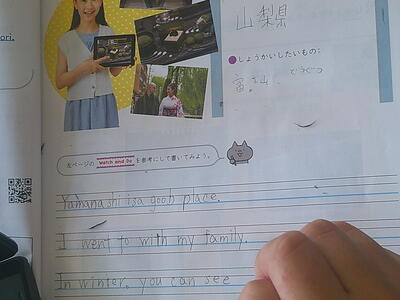 ori.
山梨県
しょうかいしたいもの:
富士山
左ページの Watch and Do を参考にして書いてみよう。
Yamanashi is a gooh place.
I went to with my family.
In winter, you can see